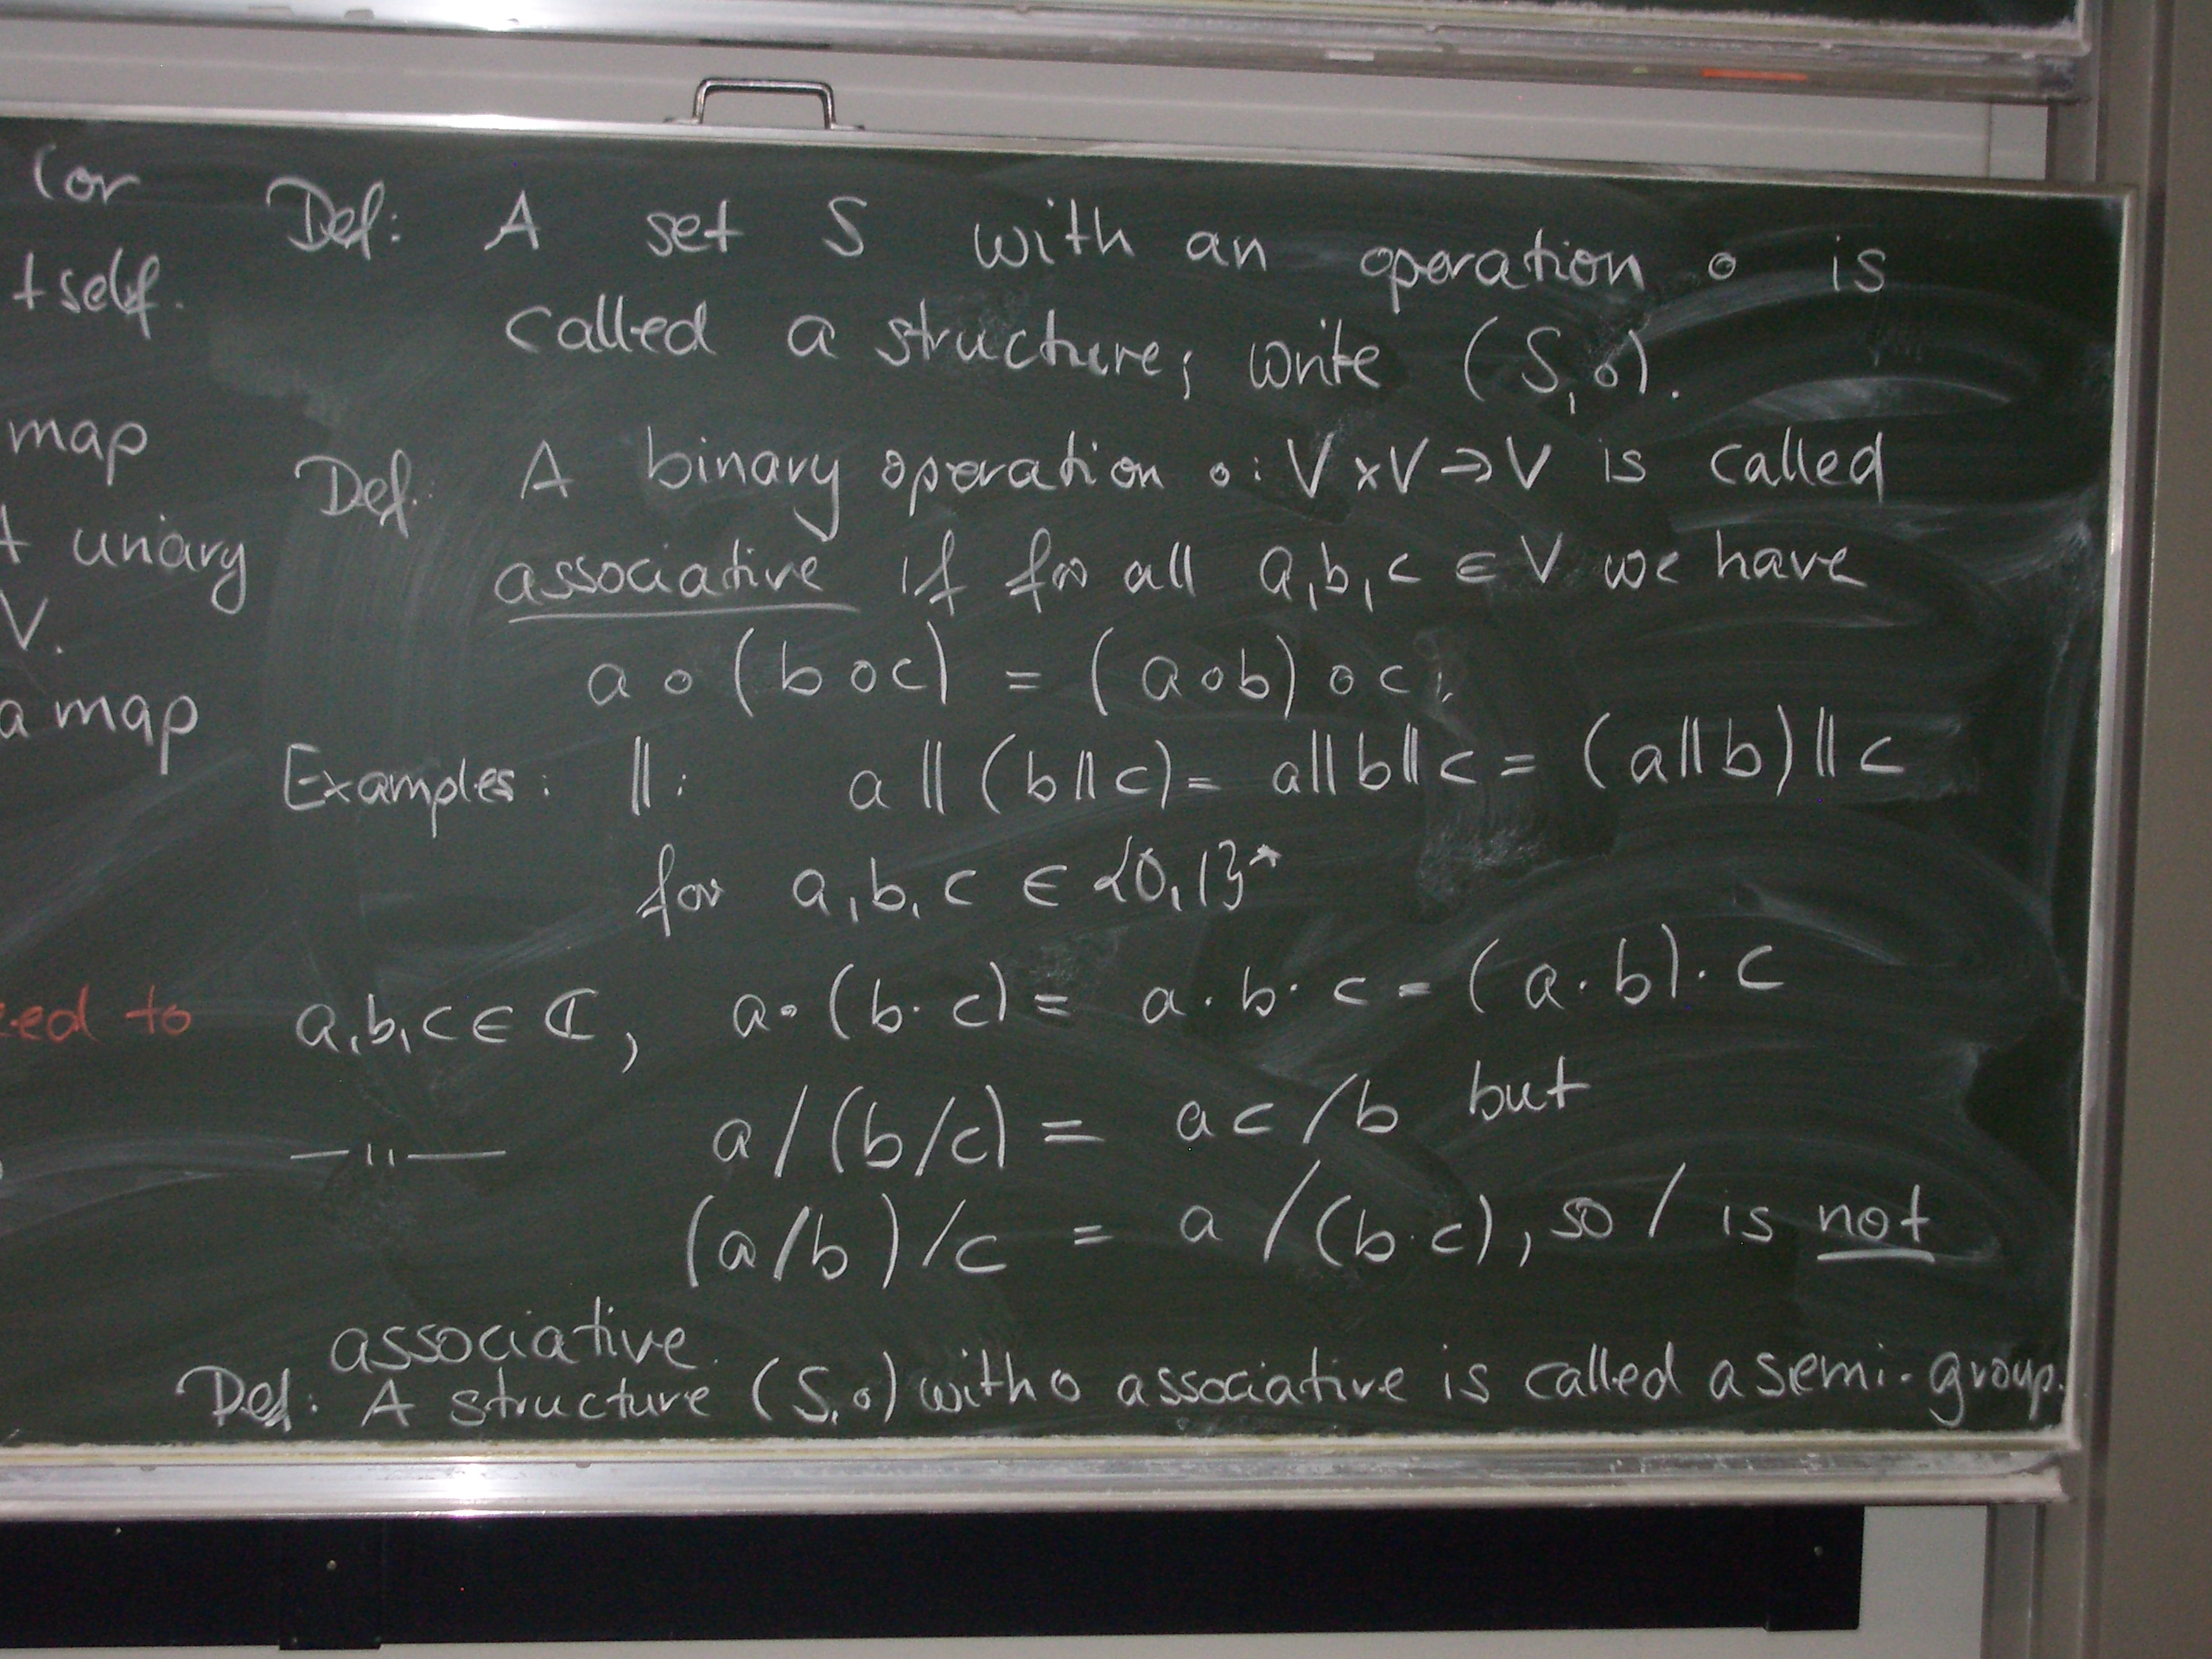 (or
tself.
map
unary
V.
a map
ed to
Def: A set S with an operation ∘ is
called a structure; write (S,∘).
Def: A binary operation ∘: V×V→V is called
associative if for all a,b,c ∈ V we have
a ∘ (b ∘ c) = (a ∘ b) ∘ c.
Examples: ||: a || (b || c) = a || b || c = (a || b) || c
for a,b,c ∈ {0,1}*
a,b,c ∈ ℂ, a · (b · c) = a · b · c = (a · b) · c
—"— a / (b/c) = ac/b but
(a/b)/c = a/(b·c), so / is not
associative.
Def: A structure (S,∘) with ∘ associative is called a semi-group.